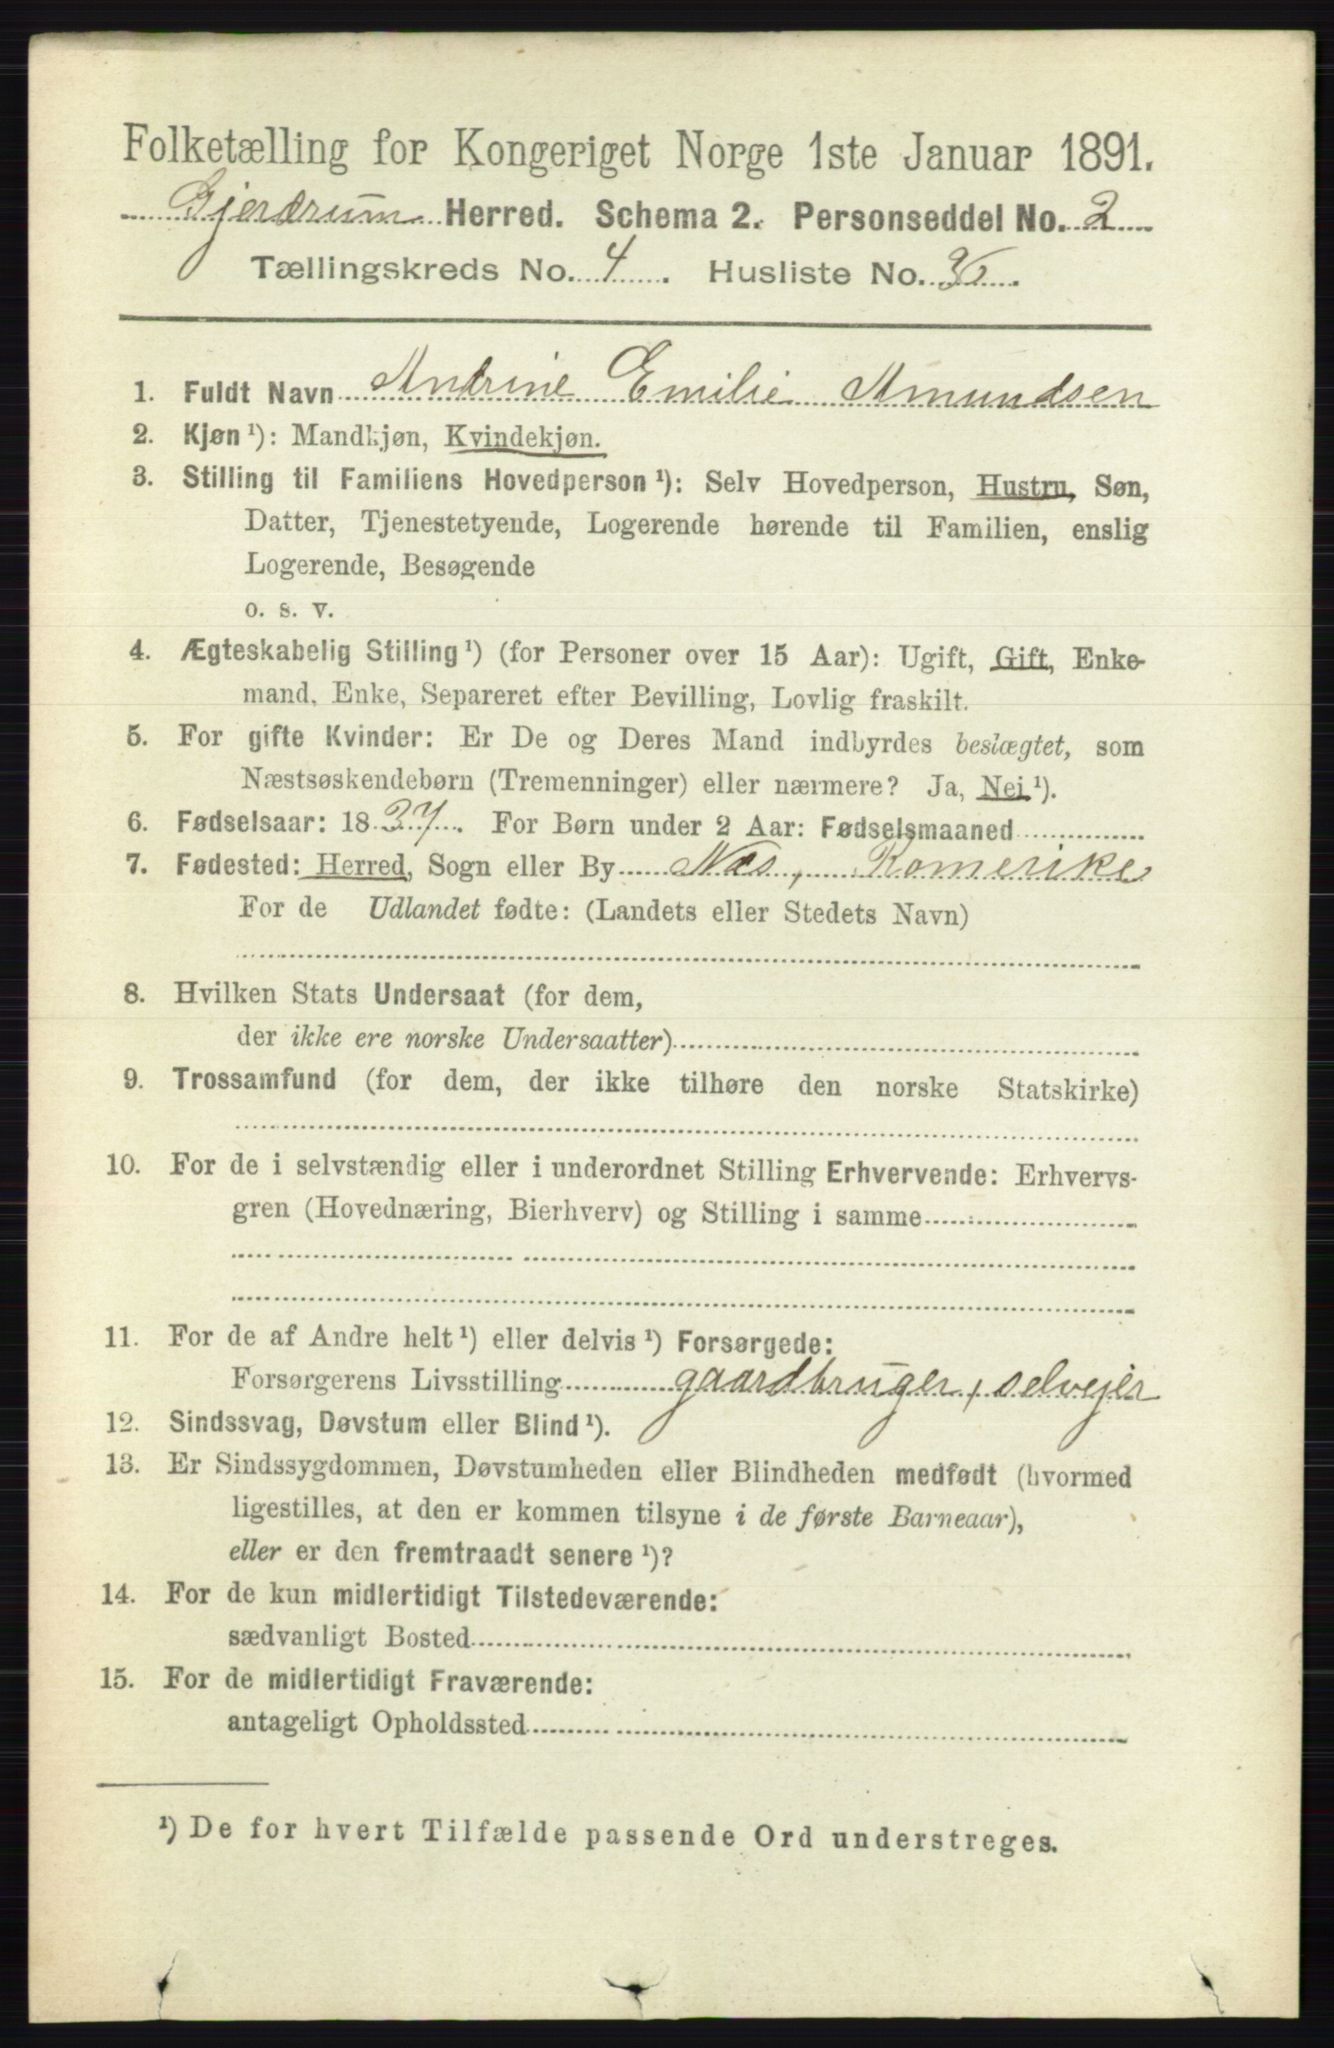 Folketælling for Kongeriget Norge 1ste Januar 1891.
Gjerdrum Herred. Schema 2. Personseddel No. 2
Tællingskreds No. 4. Husliste No.
1. Fuldt Navn Andrine Emilie Amundsen
2. Kjøn¹): Mandkjøn, Kvindekjøn.
3. Stilling til Familiens Hovedperson¹): Selv Hovedperson, Hustru, Søn,
Datter, Tjenestetyende, Logerende hørende til Familien, enslig
Logerende, Besøgende
o. s. v.
4. Ægteskabelig Stilling¹) (for Personer over 15 Aar): Ugift, Gift, Enke-
mand, Enke, Separeret efter Bevilling, Lovlig fraskilt.
5. For gifte Kvinder: Er De og Deres Mand indbyrdes beslægtet, som
Næstsøskendebørn (Tremenninger) eller nærmere? Ja, Nei¹).
6. Fødselsaar: 1837. For Børn under 2 Aar: Fødselsmaaned
7. Fødested: Herred, Sogn eller By Næs, Romerike
For de Udlandet fødte: (Landets eller Stedets Navn)
8. Hvilken Stats Undersaat (for dem,
der ikke ere norske Undersaatter)
9. Trossamfund (for dem, der ikke tilhøre den norske Statskirke)
10. For de i selvstændig eller i underordnet Stilling Erhvervende: Erhvervs-
gren (Hovednæring, Bierhverv) og Stilling i samme
11. For de af Andre helt¹) eller delvis¹) Forsørgede:
Forsørgerens Livsstilling gaardbruger, selvejer
12. Sindssvag, Døvstum eller Blind¹).
13. Er Sindssygdommen, Døvstumheden eller Blindheden medfødt (hvormed
ligestilles, at den er kommen tilsyne i de første Barneaar),
eller er den fremtraadt senere¹)?
14. For de kun midlertidigt Tilstedeværende:
sædvanligt Bosted
15. For de midlertidigt Fraværende:
antageligt Opholdssted
¹) De for hvert Tilfælde passende Ord understreges.